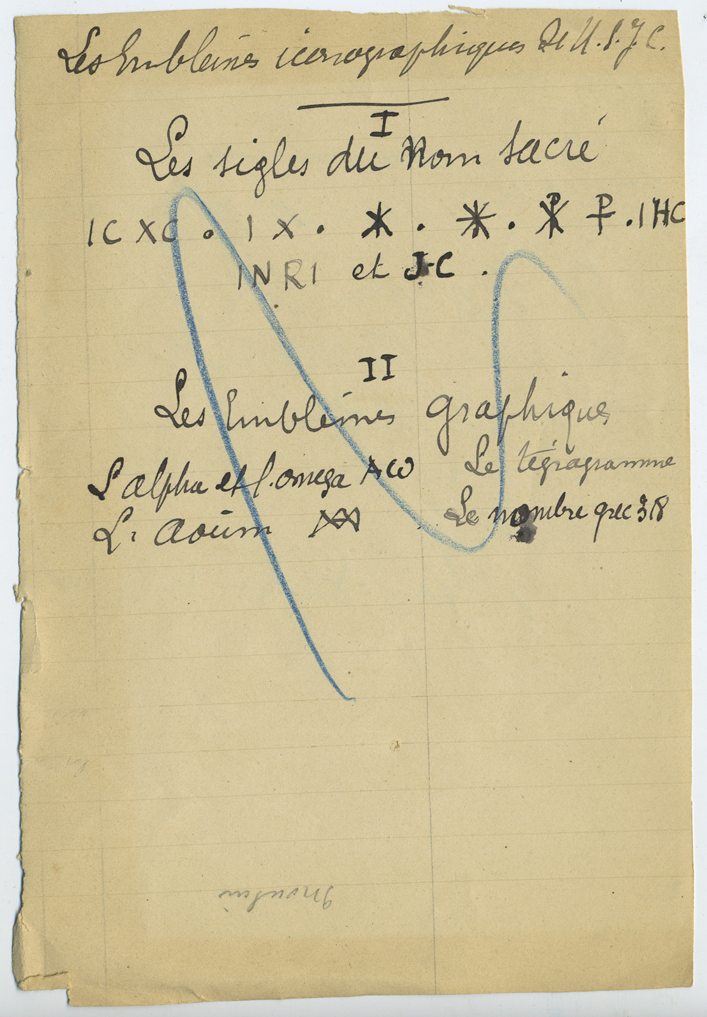 Les Emblèmes iconographiques de N.S.J.C.
I
Les sigles du Nom Sacré
IC XC . I X . . . IHC
INRI et J-C .
II
Les Emblèmes graphiques
L'alpha et l'omega AΩ Le tégragramme
L'Aoüm Le nombre grec 318